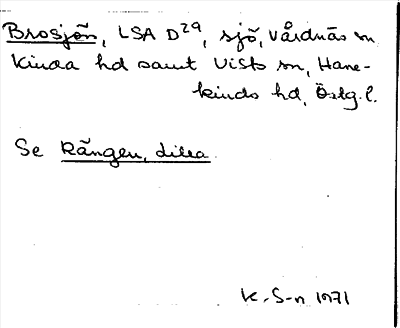 Brosjön, LSA D29, sjö, Vårdnäs sn
Kinda hd samt Vists sn, Hane-
kinds hd, Östg.l.
Se Rängen, Lilla
K. S-n 1971